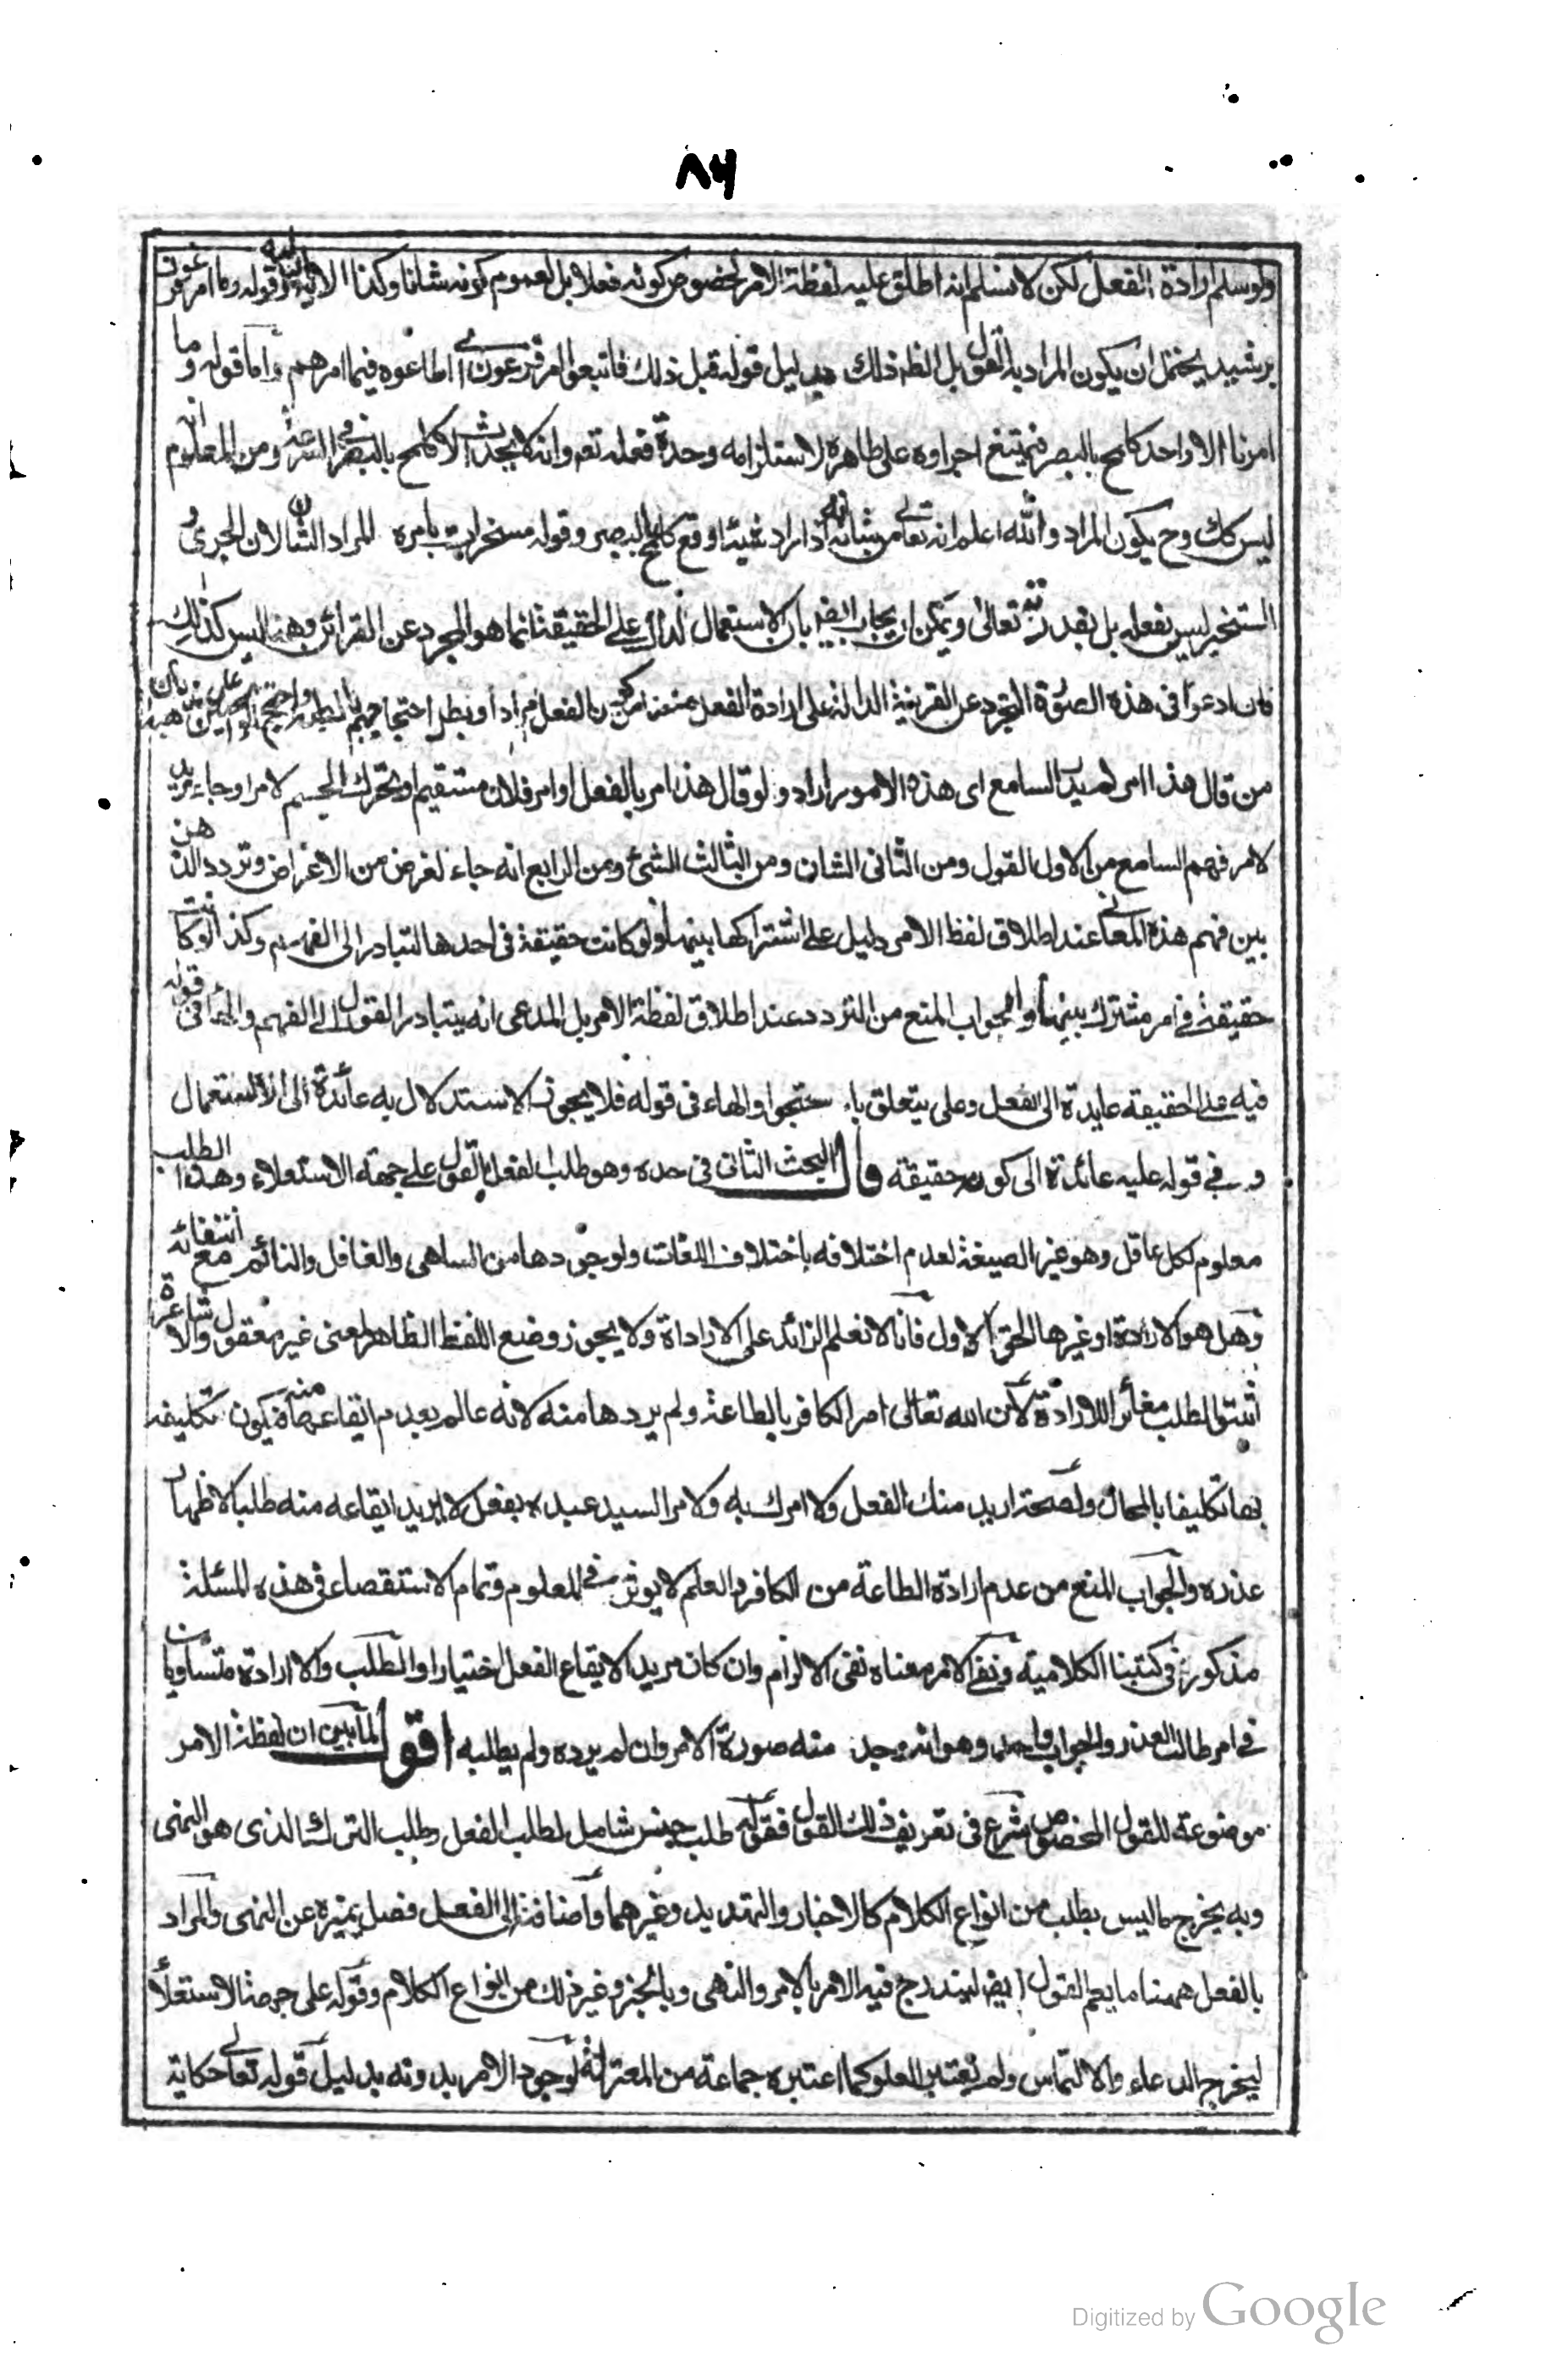 ٨٦
ولو سلم ارادة الفعل لكن لا نسلم انه اطلق عليه لفظة الامر لخصوص كونه فعلا بل لعموم كونه شانا وكذا الاية قوله وما امر فرعون
برشيد يحتمل ان يكون المراد به القول بل الظ ذلك بدليل قوله قبل ذلك فاتبعوا امر فرعون اى اطاعوه فيما امرهم واما قوله وما
امرنا الا واحد كلمح بالبصر فيمتنع اجراوه على ظاهره لاستلزامه وحدة فعله تعه وانه لا يحدث الا كلمح بالبصر فى السرعة ومن المعلوم انه
ليس كك وح يكون المراد والله اعلم انه تعالى من شانه انه اذا اراد شيئا وقع كلمح بالبصر وقوله مسخرات بامره المراد الشان لان الجرى و
التسخير ليس بفعله بل بقدرته تعالى ويمكن ان يجاب ايض بان الاستعمال الدال على الحقيقة انما هو المجرد عن القرائن وهنا ليس كذلك
فان ادعوا فى هذه الصورة التجرد عن القرينة الدالة على ارادة الفعل منعنا من كون الفعل مرادا وبطل احتجاجهم بالبطلان واحتج ابو الحسين على بان
من قال هذا امر لم يدر السامع اى هذه الامور اراد ولو قال هذا امر بالفعل او امر فلان مستقيم او تحرك الجسم لامر او جاء زيد
لامر فهم السامع من الاول القول ومن الثانى الشان ومن الثالث الشئ ومن الرابع انه جاء لغرض من الاغراض وتردد الذهن
بين فهم هذه المعانى عند اطلاق لفظ الامر دليل على اشتراكها بينها ولو كانت حقيقة فى احدها لتبادر الى الفهم وكذا لو كانت
حقيقة فى امر مشترك بينها والجواب المنع من التردد عند اطلاق لفظة الامر بل المدعى انه يتبادر القول الى الفهم والهاء فى قوله
فيه على الحقيقة عايدة الى الفعل وعلى يتعلق باحتجوا والهاء فى قوله فلا يجوز الاستدلال به عائدة الى الاستعمال
و فى قوله عليه عائدة الى كونه حقيقة قال البحث الثانى فى حده وهو طلب الفعل بالقول على جهة الاستعلاء وهذا الطلب
معلوم لكل عاقل وهو غير الصيغة لعدم اختلافه باختلاف اللغات ولوجودها من الساهى والغافل والنائم مع انتفائه
وهل هو الارادة او غيرها الحق الاول فانا لا نعلم الزائد على الارادة ولا يجوز وضع اللفظ الظاهر لمعنى غير معقول والاشاعرة
اثبتوا الطلب مغائر اللارادة لان الله تعالى امر الكافر بالطاعة ولم يردها منه لانه عالم بعدم ايقاعها منه فيكون تكليفه
بها تكليفا بالمحال ولصحة اريد منك الفعل ولا امرك به ولامر السيد عبده بفعل لا يريد ايقاعه منه طلبا لاظهار
عذره والجواب المنع من عدم ارادة الطاعة من الكافر والعلم لا يوثر فى المعلوم وتمام الاستقصاء فى هذه المسئلة
مذكور فى كتبنا الكلامية ونفى الامر معناه نفى الالزام وان كان مريدا لايقاع الفعل اختيارا والطلب والارادة متساويان
فى امر طالب العذر والجواب واحد وهو انه وجد منه صورة الامر وان لم يرده ولم يطلبه اقول لما بين ان لفظة الامر
موضوعة للقول المخصوص شرع فى تعريف ذلك القول فقوله طلب جنس شامل لطلب الفعل وطلب الترك الذى هو النهى
وبه يخرج ما ليس بطلب من انواع الكلام كالاخبار والتهديد وغيرهما واضافته الى الفعل فصل يميزه عن النهى والمراد
بالفعل ههنا ما يعم القول ايض ليندرج فيه الامر بالامر والنهى وبالخبر وغير ذلك من انواع الكلام وقوله على جهة الاستعلاء
ليخرج الدعاء والالتماس ولم يعتبر العلو كما اعتبره جماعة من المعتزلة لوجود الامر بدونه بدليل قوله تعالى حكاية
Digitized by Google